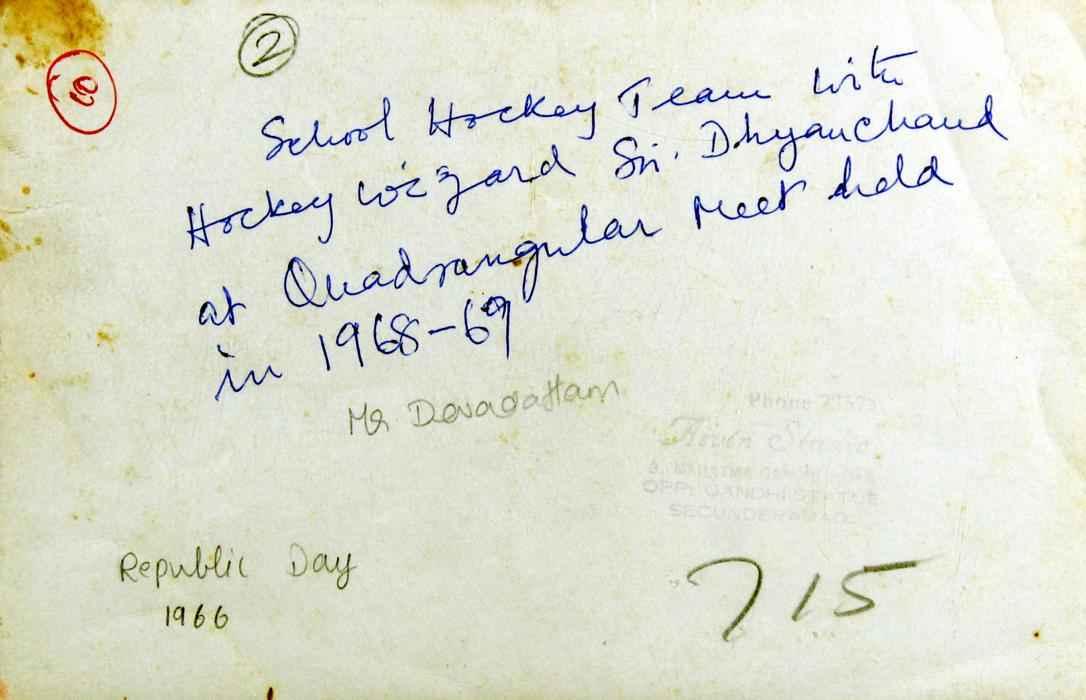 2
School Hockey Team with
Hockey Wizzard Sri. Dhyanchand
at Quadrangular Meet held
in 1968-69
Mr Devadattam
Phone
OPP: GANDHI STATUE
SECUNDERABAD.
Republic Day
1966
715